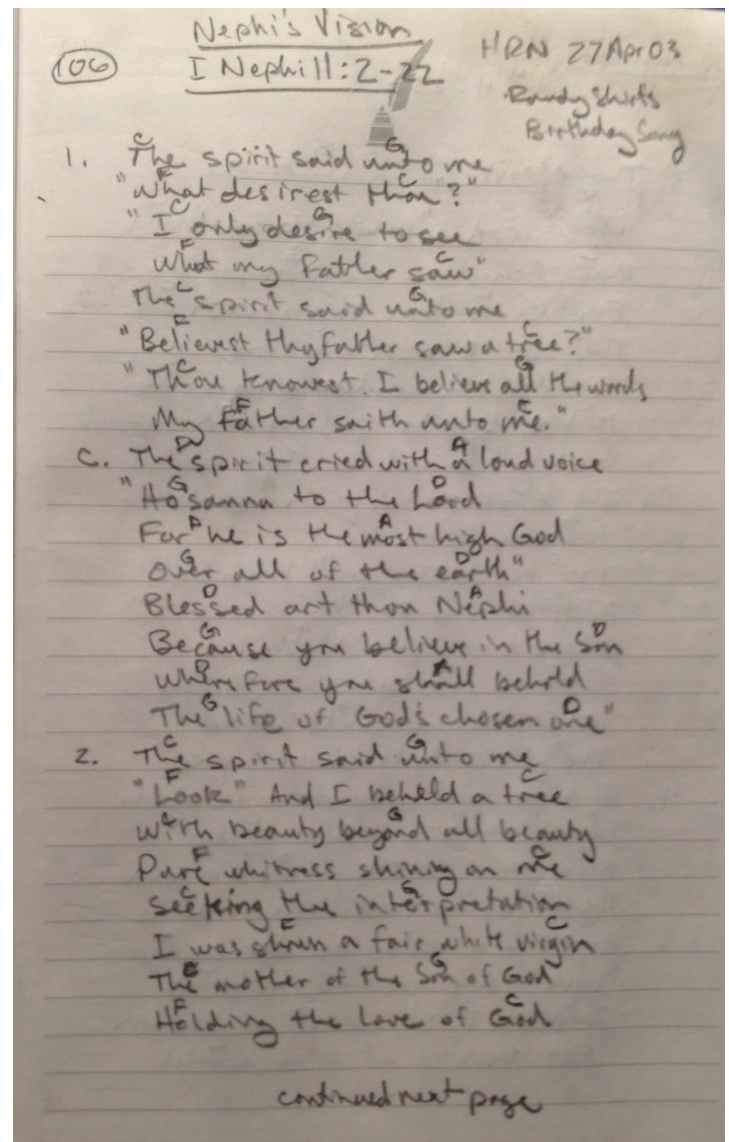 Nephi's Vision
106
I Nephi 11:2-22
HRN 27Apr03
Randy Shirts
Birthday Song
C G
1. The spirit said unto me
F C
"What desirest thou?"
C G
"I only desire to see
F C
What my Father saw"
C G
The spirit said unto me
F C
"Believest thy father saw a tree?"
C G
"Thou knowest I believe all the words
F C
My father saith unto me."
D A
C. The spirit cried with a loud voice
G D
"Hosanna to the Lord
D A
For he is the most high God
G D
Over all of the earth"
D A
Blessed art thou Nephi
G D
Because you believe in the Son
D A
Wherefore you shall behold
G D
The life of God's chosen one"
C G
2. The spirit said unto me
F C
"Look" And I beheld a tree
C G
With beauty beyond all beauty
F C
Pure whitness shining on me
C G
Seeking the interpretation
F C
I was shown a fair white virgin
C G
The mother of the Son of God
F C
Holding the Love of God
continued next page